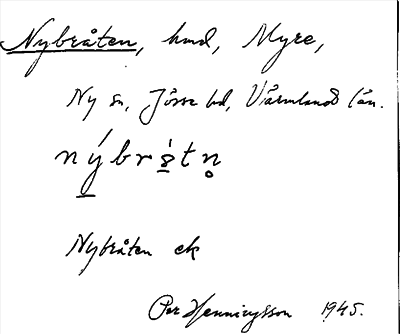 Nybråten, hmd, Myre,
Ny sn, Jösse hd, Värmlands län.
nýbrǻ̱tn̥
Nybråten ek
Per Henningsson 1945.